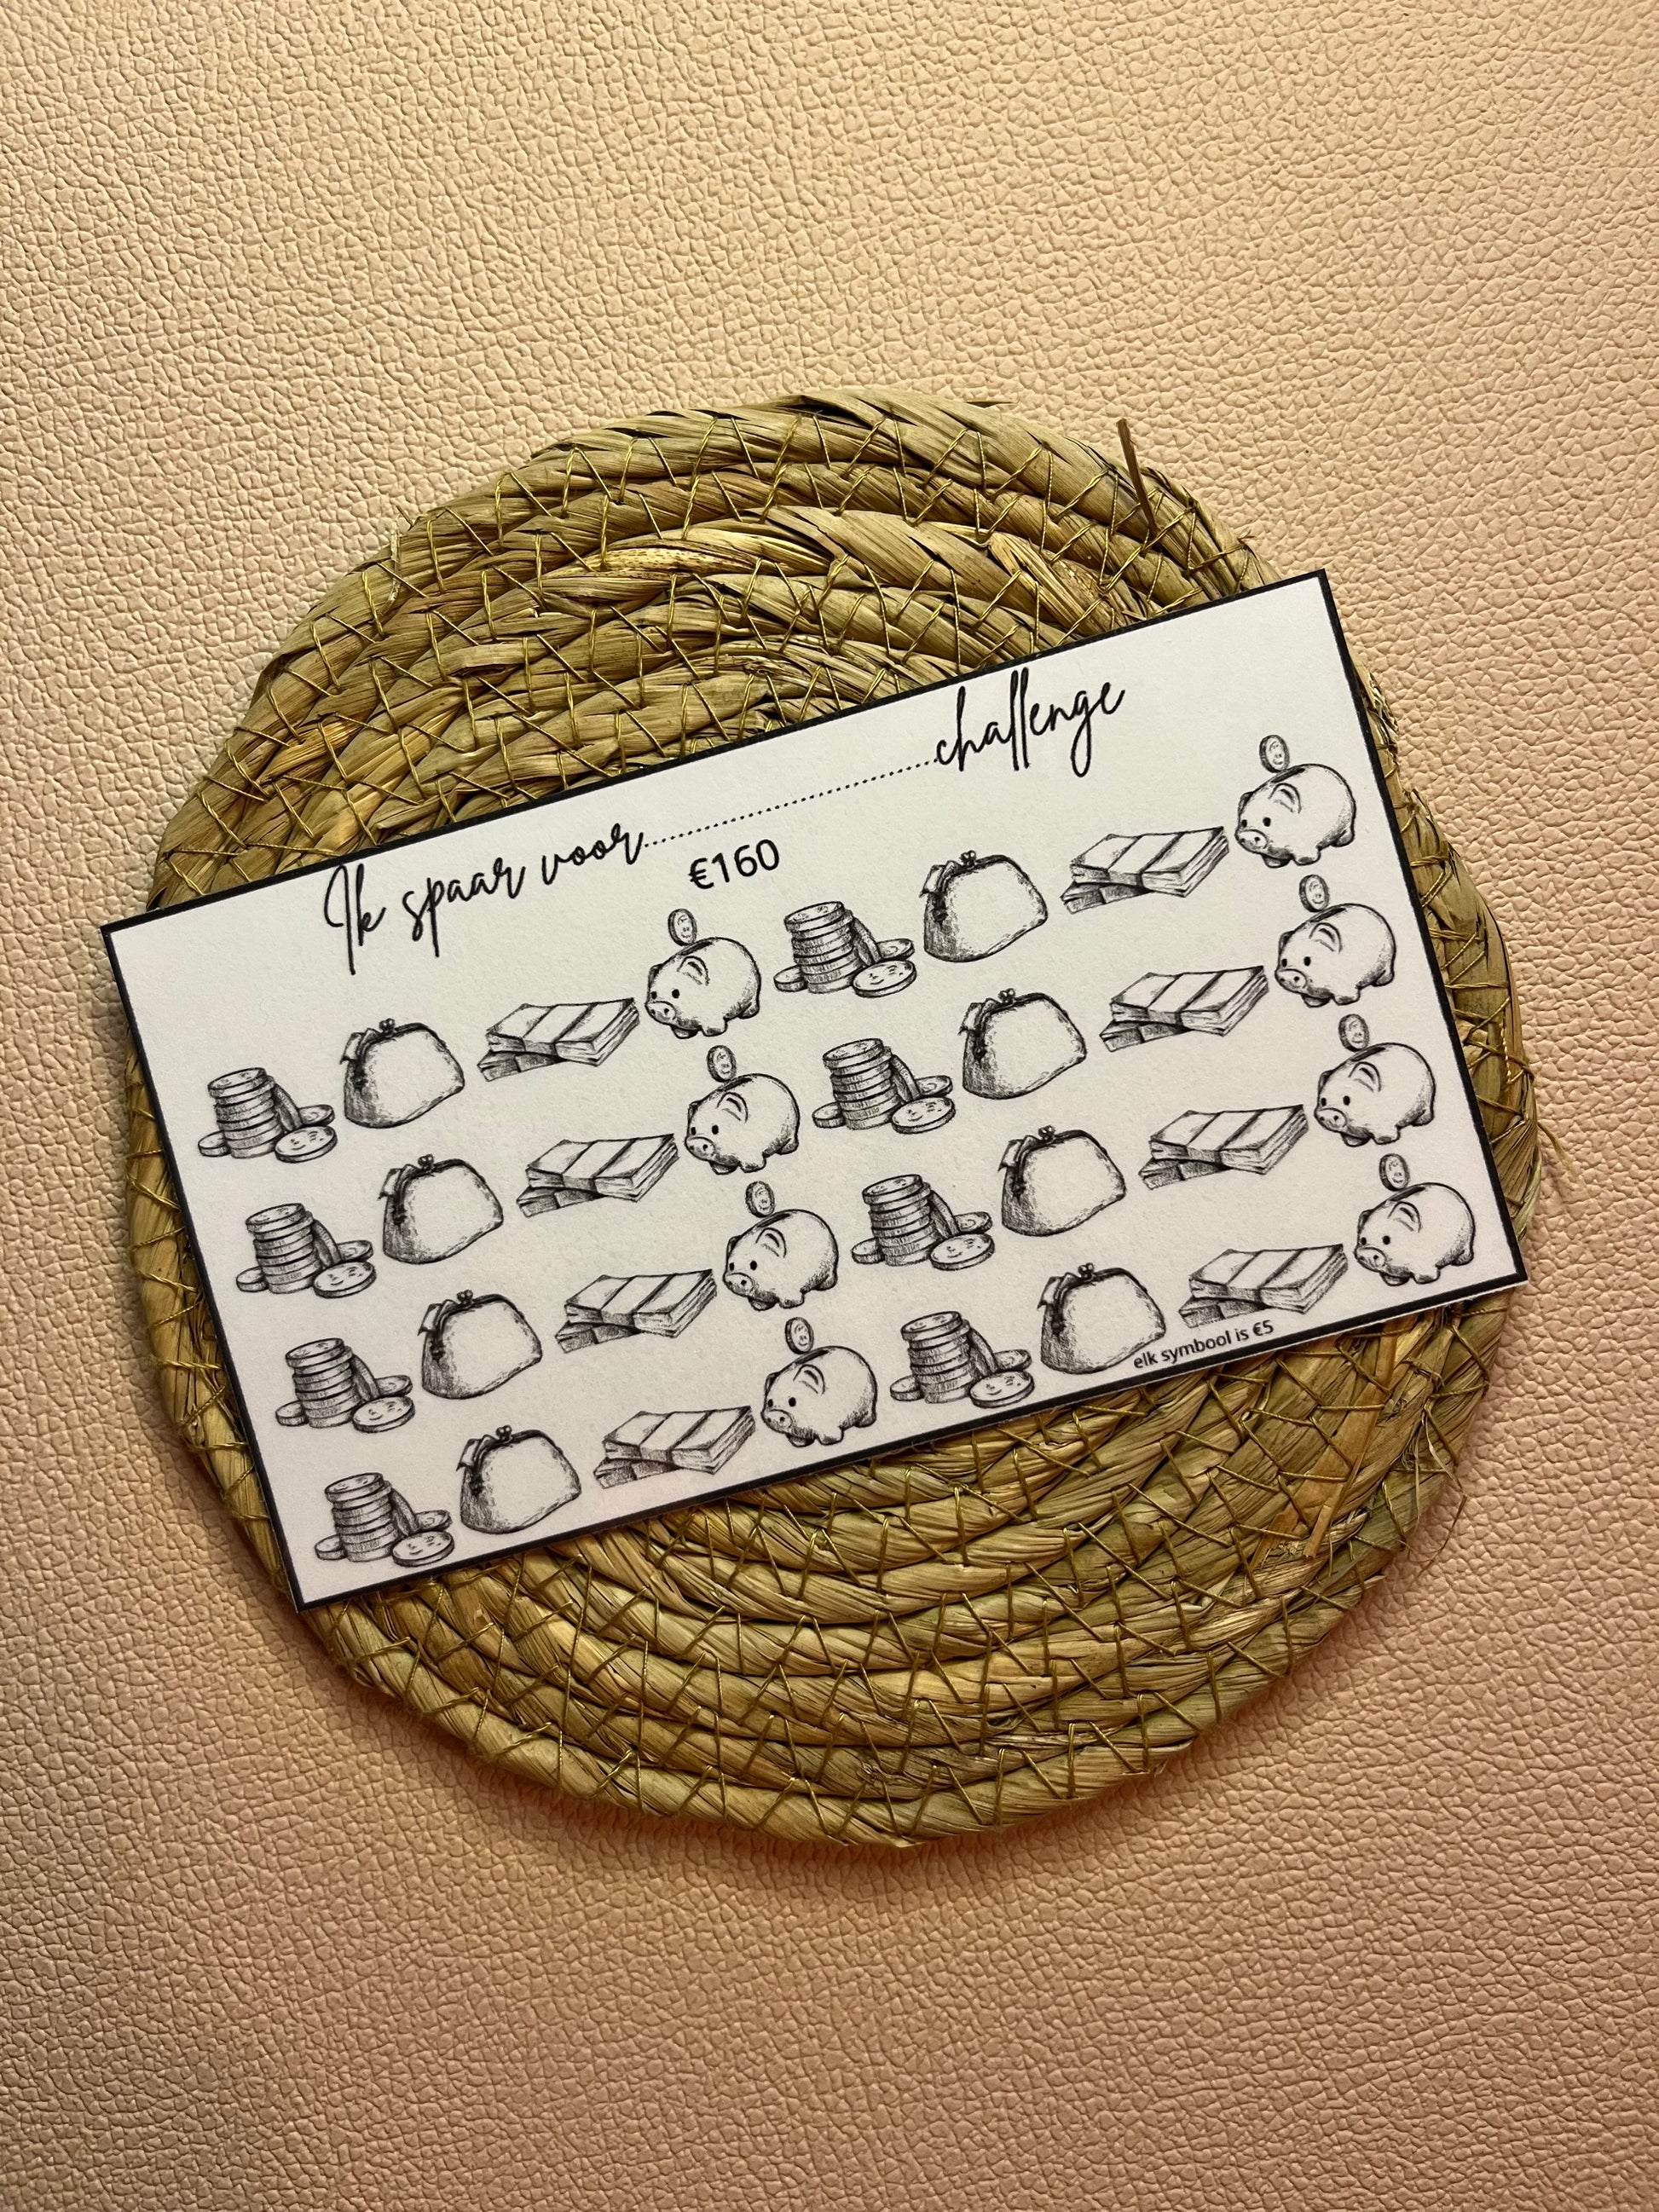 Ik spaar voor..............................challenge
€160
elk symbool is €5